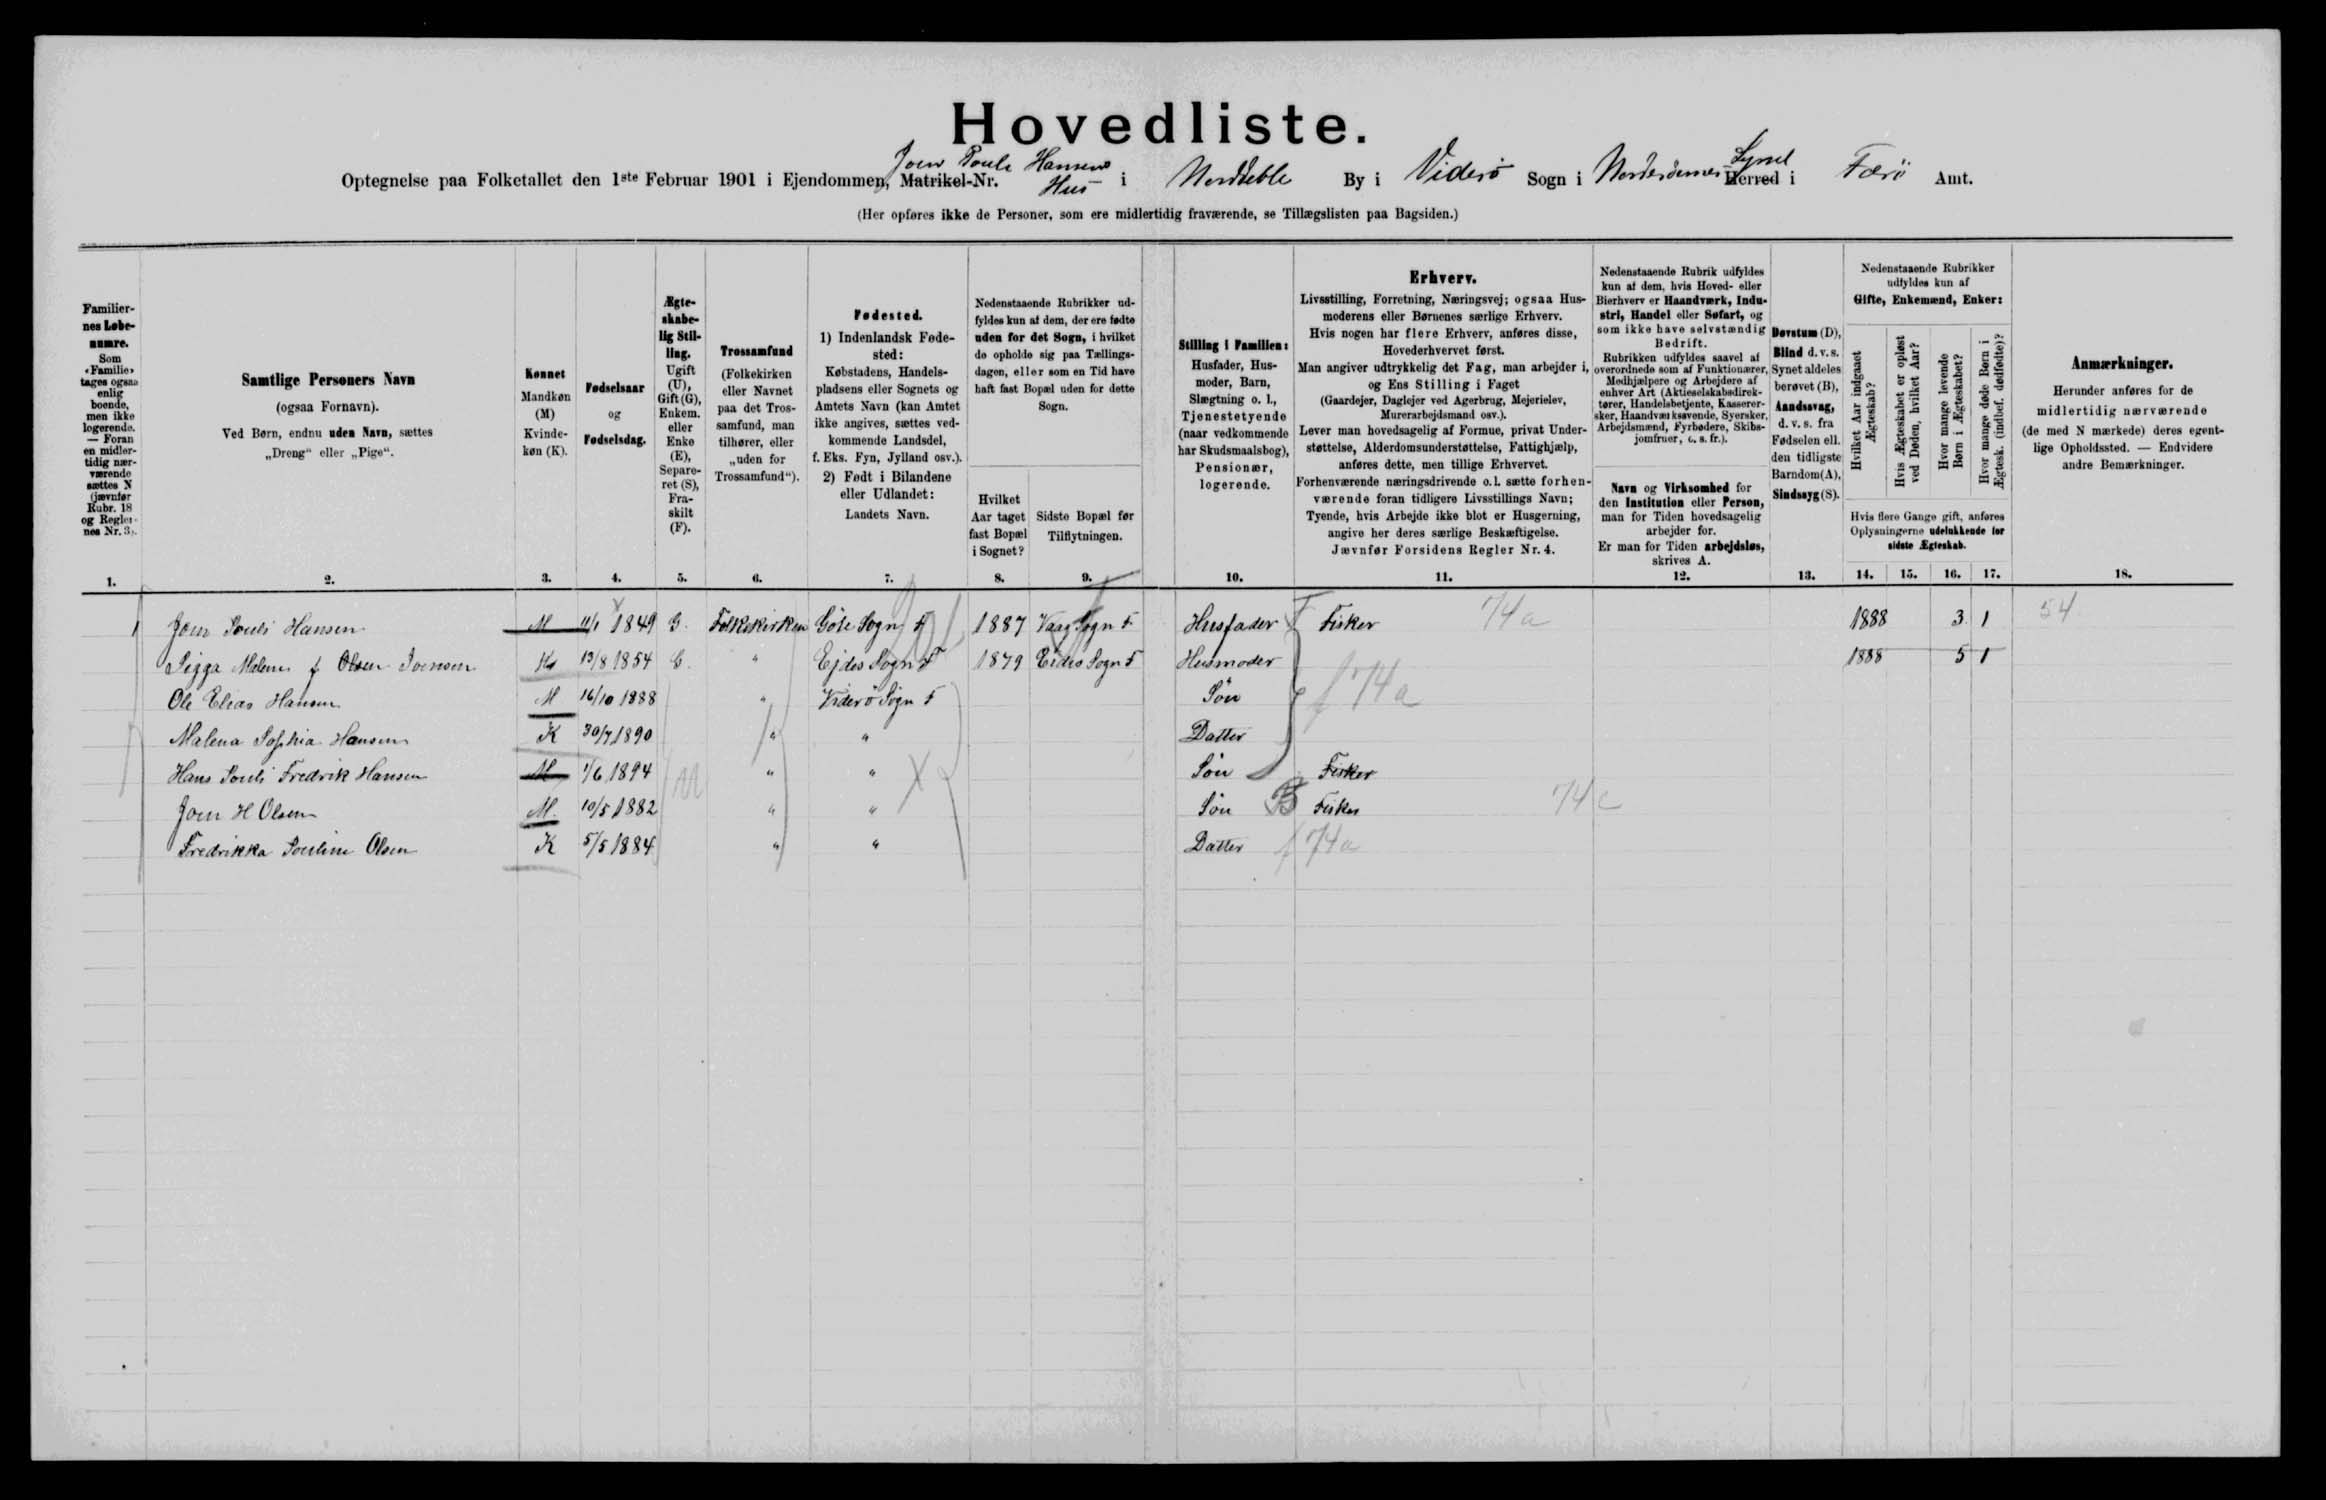 Hovedliste.
Joen Pouls Hansens
Optegnelse paa Folketallet den 1ste Februar 1901 i Ejendommen, Matrikel-Nr. Hus i Norddeble By i Viderö Sogn i Norderöernes Herred Syssel i Færö Amt.
(Her opføres ikke de Personer, som ere midlertidig fraværende, se Tillægslisten paa Bagsiden.)
Familier-
nes Løbe-
numre.
Som
«Familie»
tages ogsaa
enlig
boende,
men ikke
logerende.
— Foran
en midler-
tidig nær-
værende
sættes N
(jævnfør
Rubr. 18
og Regler-
nes Nr. 3).
1.
Samtlige Personers Navn
(ogsaa Fornavn).
Ved Børn, endnu uden Navn, sættes
„Dreng“ eller „Pige“.
2.
Kønnet
Mandkøn
(M)
Kvinde-
køn (K).
3.
Fødselsaar
og
Fødselsdag.
4.
Ægte-
skabe-
lig Stil-
ling.
Ugift
(U),
Gift (G),
Enkem.
eller
Enke
(E),
Separe-
ret (S),
Fra-
skilt
(F).
5.
Trossamfund
(Folkekirken
eller Navnet
paa det Tros-
samfund, man
tilhører, eller
„uden for
Trossamfund“).
6.
Fødested.
1) Indenlandsk Føde-
sted:
Købstadens, Handels-
pladsens eller Sognets og
Amtets Navn (kan Amtet
ikke angives, sættes ved-
kommende Landsdel,
f. Eks. Fyn, Jylland osv.).
2) Født i Bilandene
eller Udlandet:
Landets Navn.
7.
Nedenstaaende Rubrikker ud-
fyldes kun af dem, der ere fødte
uden for det Sogn, i hvilket
de opholde sig paa Tællings-
dagen, eller som en Tid have
haft fast Bopæl uden for dette
Sogn.
Hvilket
Aar taget
fast Bopæl
i Sognet?
8.
Sidste Bopæl før
Tilflytningen.
9.
Stilling i Familien:
Husfader, Hus-
moder, Barn,
Slægtning o. l.,
Tjenestetyende
(naar vedkommende
har Skudsmaalsbog),
Pensionær,
logerende.
10.
Erhverv.
Livsstilling, Forretning, Næringsvej; ogsaa Hus-
moderens eller Børnenes særlige Erhverv.
Hvis nogen har flere Erhverv, anføres disse,
Hovederhvervet først.
Man angiver udtrykkelig det Fag, man arbejder i,
og Ens Stilling i Faget
(Gaardejer, Daglejer ved Agerbrug, Mejerielev,
Murerarbejdsmand osv.).
Lever man hovedsagelig af Formue, privat Under-
støttelse, Alderdomsunderstøttelse, Fattighjælp,
anføres dette, men tillige Erhvervet.
Forhenværende næringsdrivende o. l. sætte forhen-
værende foran tidligere Livsstillings Navn;
Tyende, hvis Arbejde ikke blot er Husgerning,
angive her deres særlige Beskæftigelse.
Jævnfør Forsidens Regler Nr. 4.
11.
Nedenstaaende Rubrik udfyldes
kun af dem, hvis Hoved- eller
Bierhverv er Haandværk, Indu-
stri, Handel eller Søfart, og
som ikke have selvstændig
Bedrift.
Rubrikken udfyldes saavel af
overordnede som af Funktionærer,
Medhjælpere og Arbejdere af
enhver Art (Aktieselskabsdirek-
tører, Handelsbetjente, Kasserer-
sker, Haandværksøvende, Syersker,
Arbejdsmænd, Fyrbødere, Skibs-
jomfruer, o. s. fr.).
Navn og Virksomhed for
den Institution eller Person,
man for Tiden hovedsagelig
arbejder for.
Er man for Tiden arbejdsløs,
skrives A.
12.
Døvstum (D),
Blind d. v. s.
Synet aldeles
berøvet (B),
Aandssvag,
d. v. s. fra
Fødselen ell.
den tidligste
Barndom (A),
Sindssyg (S).
13.
Nedenstaaende Rubrikker
udfyldes kun af
Gifte, Enkemænd, Enker:
Hvilket Aar indgaaet
Ægteskab?
Hvis Ægteskabet er opløst
ved Døden, hvilket Aar?
Hvor mange levende
Børn i Ægteskabet?
Hvor mange døde Børn i
Ægtesk. (indbef. dødfødte)?
Hvis flere Gange gift, anføres
Oplysningerne udelukkende for
sidste Ægteskab.
14. 15. 16. 17.
Anmærkninger.
Herunder anføres for de
midlertidig nærværende
(de med N mærkede) deres egent-
lige Opholdssted. — Endvidere
andre Bemærkninger.
18.
1 Joen Pouli Hansen M 11/1 1849 G. Folkekirken Göte Sogn F 1887 Vaag Sogn F Husfader Fisker 74a 1888 3 1 54
Sigga Malene f Olsen Joensen K 13/8 1854 G. " Ejdes Sogn F 1879 Eides Sogn F Husmoder 1888 5 1
Ole Elias Hansen M 16/10 1888 " Viderö Sogn F Sön f 74a
Malena Sophia Hansen K 30/7 1890 " " Datter
Hans Pouli Fredrik Hansen M 1/6 1894 " " Sön Fisker
Joen H Olsen M. 10/5 1882 " " Sön B Fisker 74c
Fredrikka Pouline Olsen K 5/5 1884 " " Datter f 74a